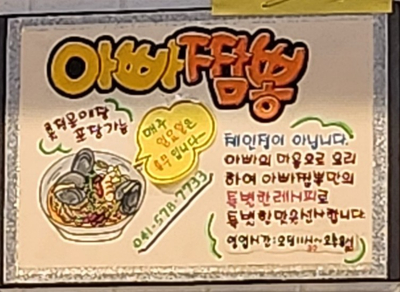 아빠짬뽕
포장가능
매주
일요일은
휴무입니다
041-578-7733
체인점이 아닙니다.
아빠의 마음으로 요리
하여 아빠짬뽕만의
특별한레시피로
특별한맛을선사합니다.
영업시간: 오전11시~오후8시